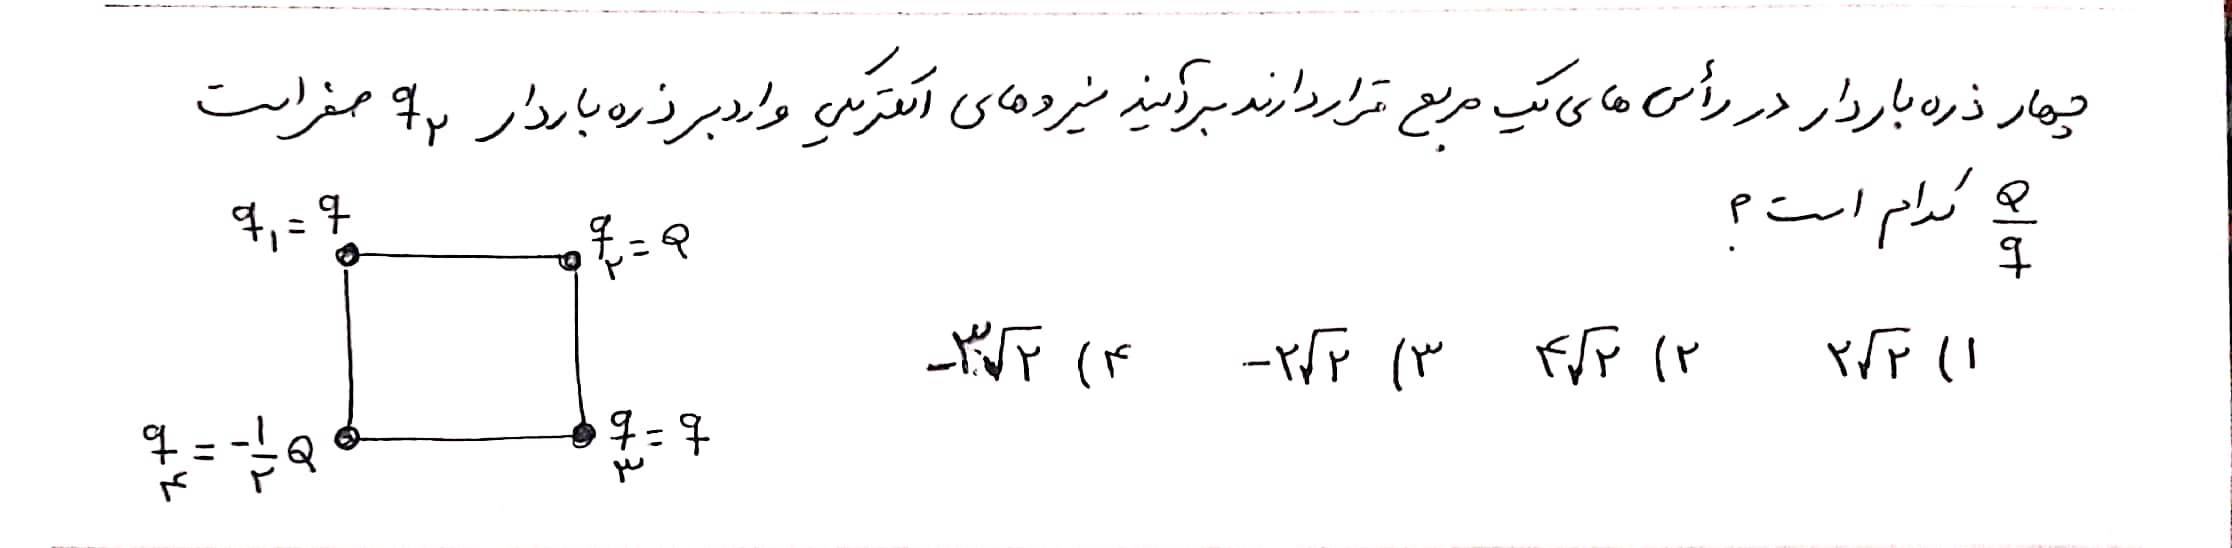 چهار ذره باردار در رأس های یک مربع قرار دارند برآیند نیروهای الکتریکی وارد بر ذره باردار q۲ صفر است
Q/q کدام است ؟
۱) ۲√۲ ۲) ۴√۲ ۳) -۲√۲ ۴) -۳√۲
q۱ = q
q۲ = Q
q۴ = -۱/۲ Q
q۳ = q